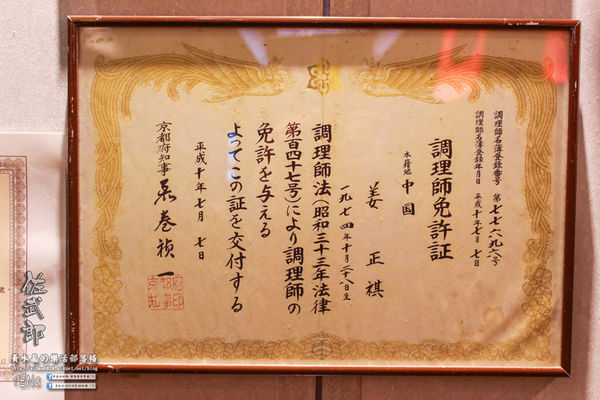 調理師免許証
調理師名簿登録番号 第七七六九六号
調理師名簿登録年月日 平成十年七月七日
本籍地 中国
姜 正祺
一九七四年十月二十八日生
調理師法（昭和三十三年法律
第百四十七号）により調理師の
免許を与える
よつてこの証を交付する
平成十年七月七日
京都府知事 荒巻禎一
京都府
知事印
佐武郎
黃水晶的樂活部落格
PENG